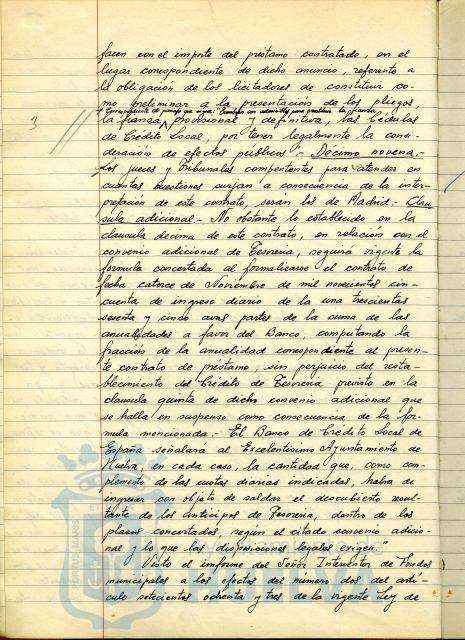 facen con el importe del préstamo contratado, en el
lugar correspondiente de dicho anuncio, referente a
la obligación de los licitadores de constituir, co-
mo preliminar a la presentación de los pliegos,
la fianza provisional y definitiva, las Cédulas
de Crédito Local, por tener legalmente la consi-
deración de efectos públicos.- Décimo novena.-
3
Los jueces y Tribunales competentes para entender en
cuantas cuestiones surjan a consecuencia de la inter-
pretación de este contrato, serán los de Madrid.- Clau-
sula adicional.- No obstante lo establecido en la
clausula decima de este contrato, en relación con el
convenio adicional de Tesoreria, seguirá vigente la
formula concertada al formalizarse el contrato de
fecha catorce de Noviembre de mil novecientos cin-
cuenta de ingreso diario de la una trescientas
sesenta y cinco avas partes de la suma de las
anualidades a favor del Banco, computando la
fracción de la anualidad correspondiente al presen-
te contrato de préstamo, sin perjuicio del resta-
blecimiento del Crédito de Tesoreria previsto en la
clausula quinta de dicho convenio adicional que
se halla en suspenso como consecuencia de la for-
mula mencionada.- El Banco de Crédito Local de
España señalará al Excelentísimo Ayuntamiento de
Huelva, en cada caso, la cantidad que, como com-
plemento de las cuotas diarias indicadas, haba de
ingresar con objeto de saldar el descubierto resul-
tante de los Anticipos de Tesoreria, dentro de los
plazos concertados, según el citado convenio adicio-
nal y lo que las disposiciones legales exigen."
Visto el informe del Señor Interventor de Fondos
municipales a los efectos del número dos del artí-
culo setecientos ochenta y tres de la vigente Ley de
PORTUS MARIS